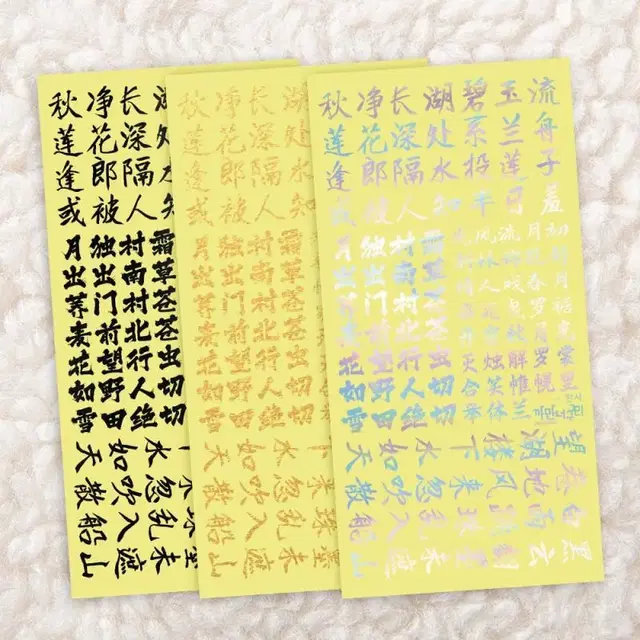 秋净长湖
莲花深处
逢郎隔水
或被人知
霜草苍苍虫切切
村南村北行人绝
独出门前望野田
月出荞麦花如雪
水如天
忽吹散
乱入船
未遮山
秋净长湖
莲花深处
逢郎隔水
或被人知
霜草苍苍虫切切
村南村北行人绝
独出门前望野田
月出荞麦花如雪
下水如天
来忽吹散
珠乱入船
墨未遮山
秋净长湖碧玉流
莲花深处系兰舟
逢郎隔水投莲子
或被人知半日羞
霜草苍苍虫切切
村南村北行人绝
独出门前望野田
月出荞麦花如雪
望湖楼下水如天
卷地风来忽吹散
白雨跳珠乱入船
黑云翻墨未遮山